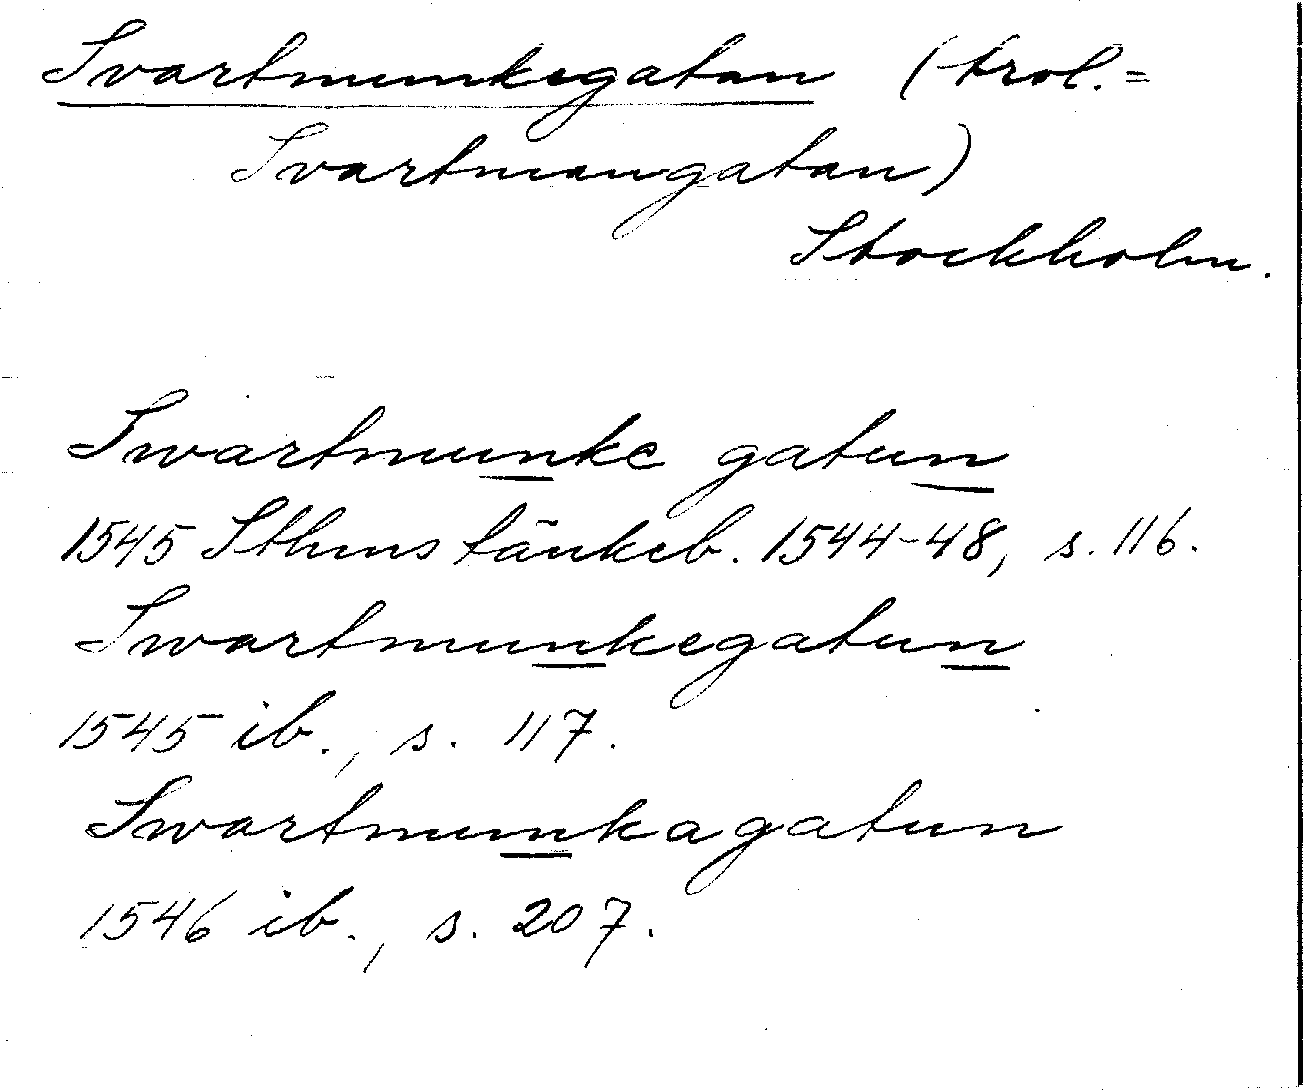 Svartmunkegatan (trol.=
Svartmangatan)
Stockholm.
Swartmunke gatun
1545 Sthms tänkeb. 1544-48, s. 116.
Swartmunkegatun
1545 ib., s. 117.
Swartmunkagatun
1546 ib., s. 207.